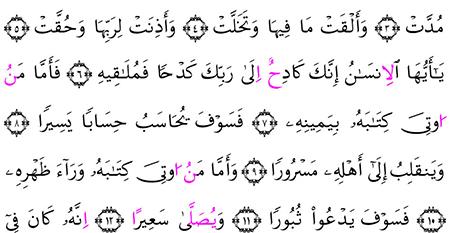 مُدَّتْ ﴿٣﴾ وَأَلْقَتْ مَا فِيهَا وَتَخَلَّتْ ﴿٤﴾ وَأَذِنَتْ لِرَبِّهَا وَحُقَّتْ ﴿٥﴾
يَٰٓأَيُّهَا اَلِانسَٰنُ إِنَّكَ كَادِحٌ اِلَىٰ رَبِّكَ كَدْحًا فَمُلَٰقِيهِ ﴿٦﴾ فَأَمَّا مَنُ
اوتِىَ كِتَٰبَهُۥ بِيَمِينِهِۦ ﴿٧﴾ فَسَوْفَ يُحَاسَبُ حِسَابًا يَسِيرًا ﴿٨﴾
وَيَنقَلِبُ إِلَىٰٓ أَهْلِهِۦ مَسْرُورًا ﴿٩﴾ وَأَمَّا مَنُ اوتِىَ كِتَٰبَهُۥ وَرَآءَ ظَهْرِهِۦ
﴿١٠﴾ فَسَوْفَ يَدْعُوا۟ ثُبُورًا ﴿١١﴾ وَيُصَلَّىٰ سَعِيرًا ﴿١٢﴾ اِنَّهُۥ كَانَ فِىٓ